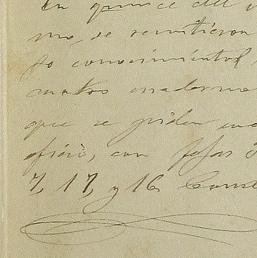 En quince del
mo, se remitieron
to conocimiento
cuatro cuaderno
que se piden en
oficio, con fojas
7, 17, y 16. Const